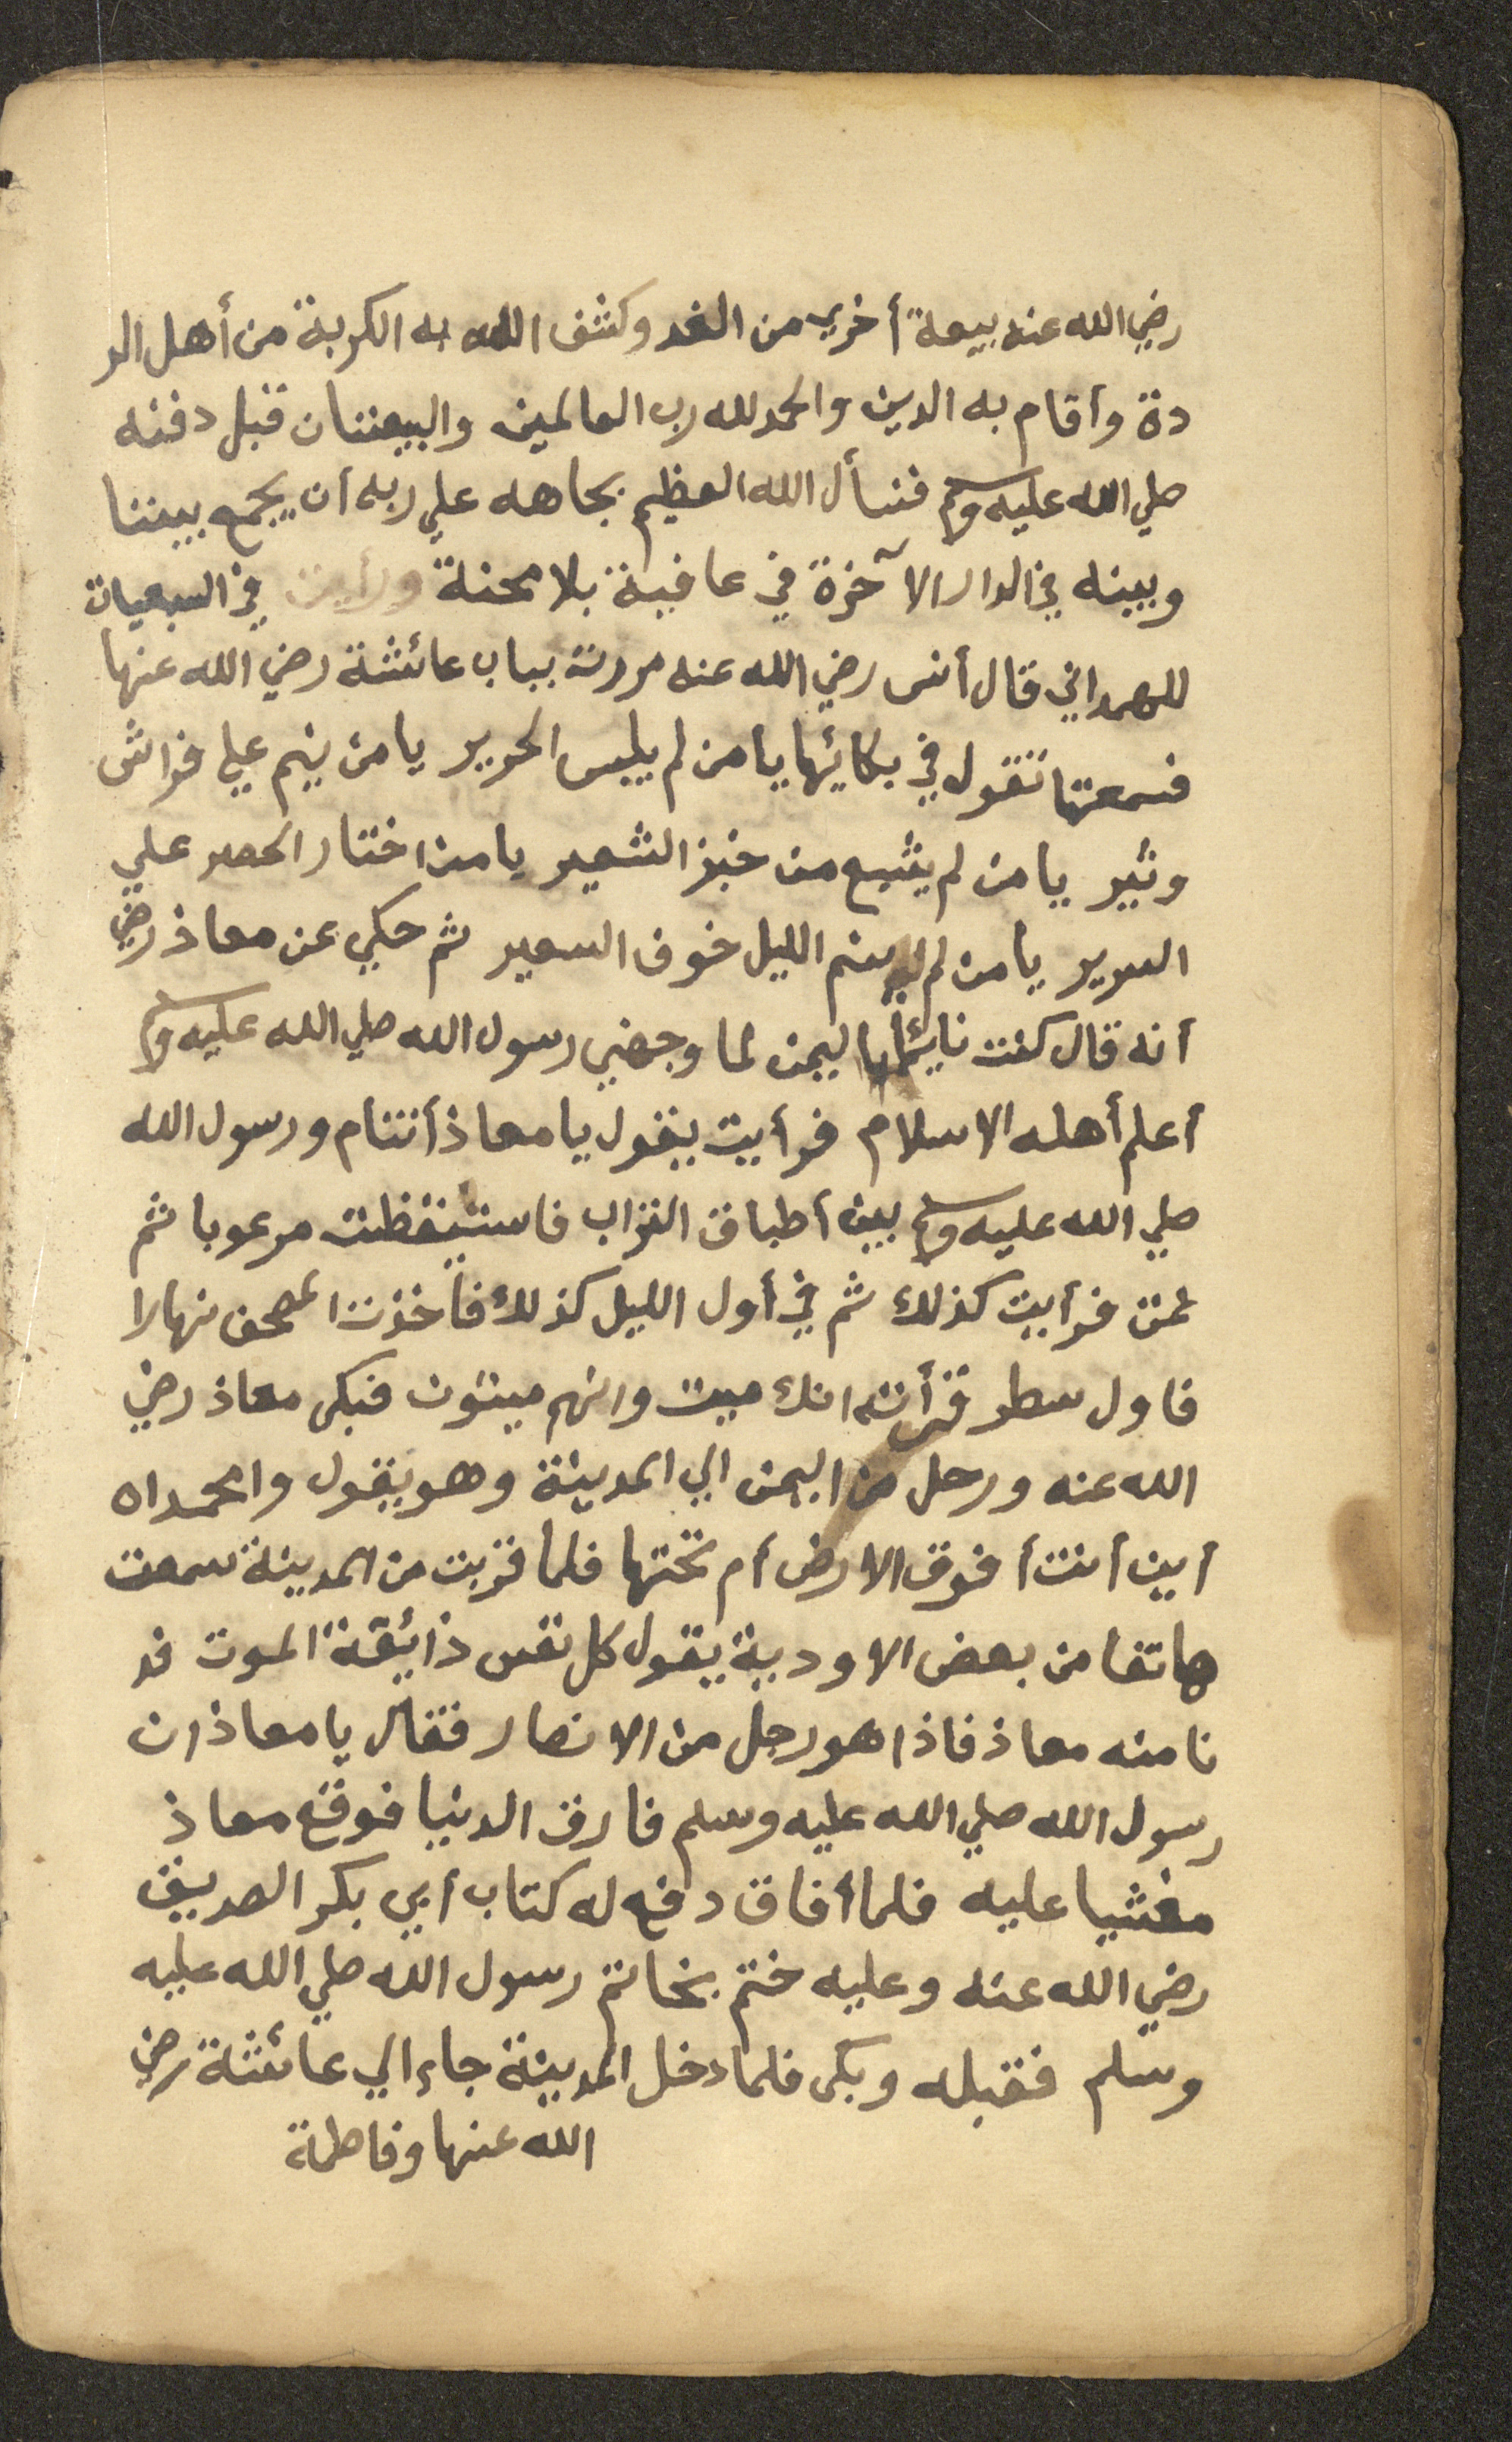 رضي الله عنه بيعة أخرى من الغد وكشف الله به الكربة من أهل الر
دة وأقام به الدين والحمد لله رب العالمين والبيعتان قبل دفنه
صلي الله عليه وسلم فنسأل الله العظيم بجاهه علي ربه أن يجمع بيننا
وبينه في الدار الآخرة في عافية بلا محنة ورأيت في السبعيات
للهمداني قال أنس رضي الله عنه مررت بباب عائشة رضي الله عنها
فسمعتها تقول في بكائها يا من لم يلبس الحرير يا من ينم علي فراش
وثير يا من لم يشبع من خبز الشعير يا من اختار الحصر علي
السرير يا من لم ينم الليل خوف السعير ثم حكي عن معاذ رضي
أنه قال كنت نائما باليمن لما وجهني رسول الله صلي الله عليه وسلم
أعلم أهله الاسلام فرأيت يقول يا معاذ أتنام ورسول الله
صلي الله عليه وسلم بين أطباق التراب فاستيقظت مرعوبا ثم
نمت فرأيت كذلك ثم في أول الليل كذلك فأخذت المصحف نهارا
فاول سطر قرأته انك ميت وانهم ميتون فبكى معاذ رضي
الله عنه ورحل من اليمن الي المدينة وهو يقول وامحمداه
أين أنت أفوق الارض أم تحتها فلما قربت من المدينة سمعت
هاتفا من بعض الاودية يقول كل نفس ذائقة الموت فد
نا منه معاذ فاذا هو رجل من الانصار فقال يا معاذ ان
رسول الله صلي الله عليه وسلم فارق الدنيا فوقع معاذ
مغشيا عليه فلما أفاق دفع له كتاب أبي بكر الصديق
رضي الله عنه وعليه ختم بخاتم رسول الله صلي الله عليه
وسلم فقبله وبكى فلما دخل المدينة جاء الي عائشة رضي
الله عنها وفاطمة